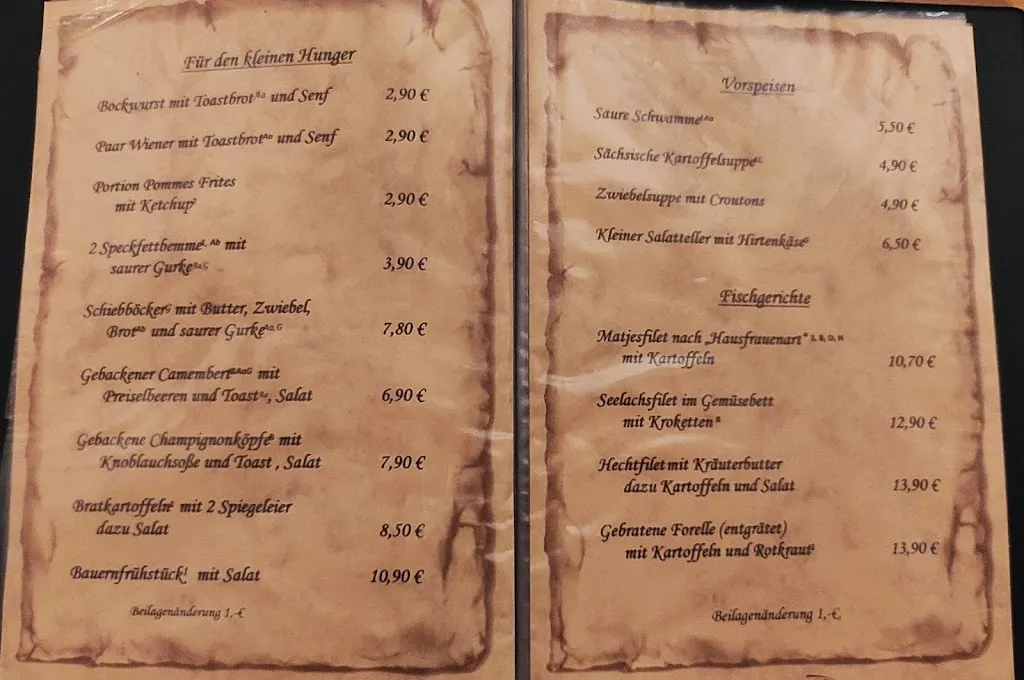 Für den kleinen Hunger
Bockwurst mit Toastbrot und Senf 2,90 €
Paar Wiener mit Toastbrot und Senf 2,90 €
Portion Pommes Frites
mit Ketchup 2,90 €
2 Speckfettbemme mit
saurer Gurke 3,90 €
Schiebböcker mit Butter, Zwiebel,
Brot und saurer Gurke 7,80 €
Gebackener Camembert mit
Preiselbeeren und Toast, Salat 6,90 €
Gebackene Champignonköpfe mit
Knoblauchsoße und Toast , Salat 7,90 €
Bratkartoffeln mit 2 Spiegeleier
dazu Salat 8,50 €
Bauernfrühstück mit Salat 10,90 €
Beilagenänderung 1,-€
Vorspeisen
Saure Schwamme 5,50 €
Sächsische Kartoffelsuppe 4,90 €
Zwiebelsuppe mit Croutons 4,90 €
Kleiner Salatteller mit Hirtenkäse 6,50 €
Fischgerichte
Matjesfilet nach „Hausfrauenart“
mit Kartoffeln 10,70 €
Seelachsfilet im Gemüsebett
mit Kroketten 12,90 €
Hechtfilet mit Kräuterbutter
dazu Kartoffeln und Salat 13,90 €
Gebratene Forelle (entgrätet)
mit Kartoffeln und Rotkraut 13,90 €
Beilagenänderung 1,-€,